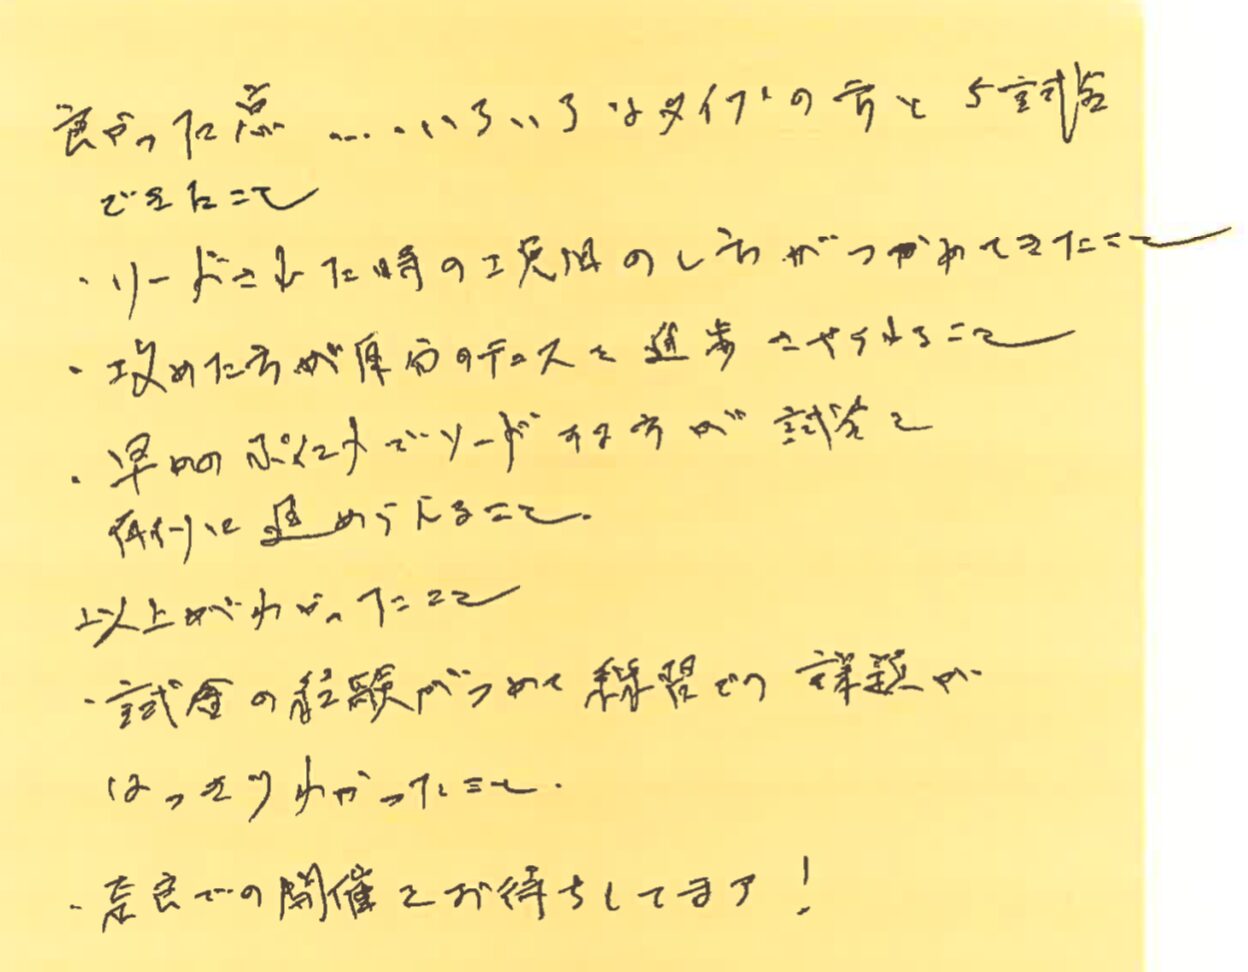 良かった点 ‥‥いろいろなタイプの方と5試合
できたこと
・リードされた時の工夫のし方がつかめてきたこと
・攻めた方が自分のテニスを進歩させられること
・早めのポイントでリードする方が試合を
有利に進めらえること.
以上がわかったこと
・試合の経験がつめて練習での課題が
はっきりわかったこと.
・奈良での開催をお待ちしてます!